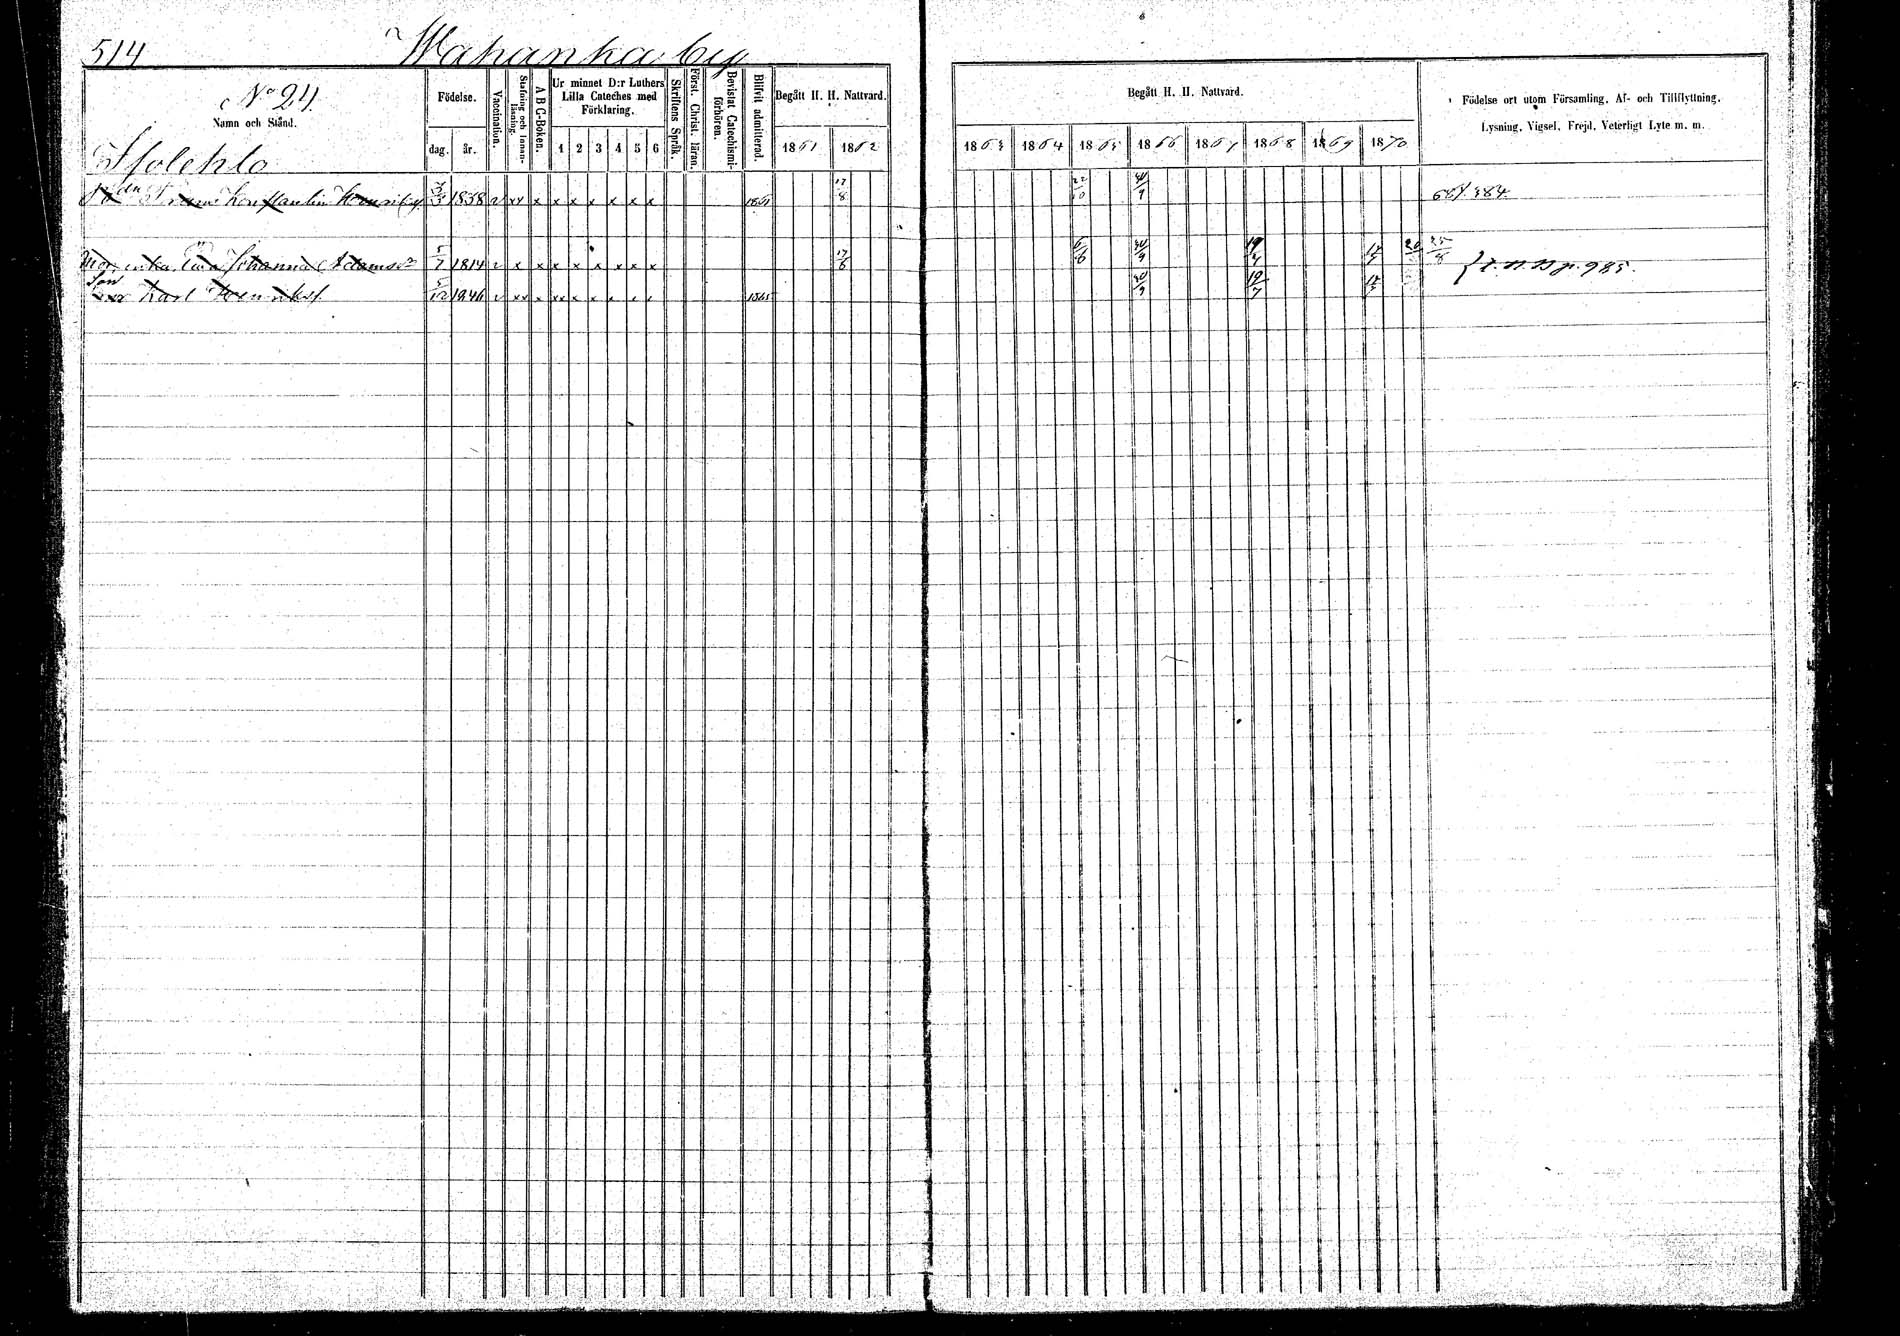 514 Wahanka by
No 24.
Namn och Stånd.
Födelse.
dag. år.
Vaccination.
Stafning och innan-läsning.
A B C-Boken.
Ur minnet D:r Luthers
Lilla Cateches med
Förklaring.
1 2 3 4 5 6
Skriftens Språk.
Först. Christ. läran.
Bevistat Catechismi-förhören.
Blifvit admitterad.
Begått H. H. Nattvard.
1861 1862
Begått H. H. Nattvard.
1863 1864 1865 1866 1867 1868 1869 1870
Födelse ort utom Församling, Af- och Tillflyttning,
Lysning, Vigsel, Frejd, Veterligt Lyte m. m.
Frans Konstantin Henriks 3/3 1838 v xx x x x x x x x 1861 17/8 22/10 30/9
enka Eva Johanna Adamsdr 5/7 1814 v x x x x x x x x 17/8 6/6 30/9 19/7 17/7 25/8
Son Karl Henriks 5/12 1846 v xx x xx x x x x x 1865 30/9 19/7 17/7